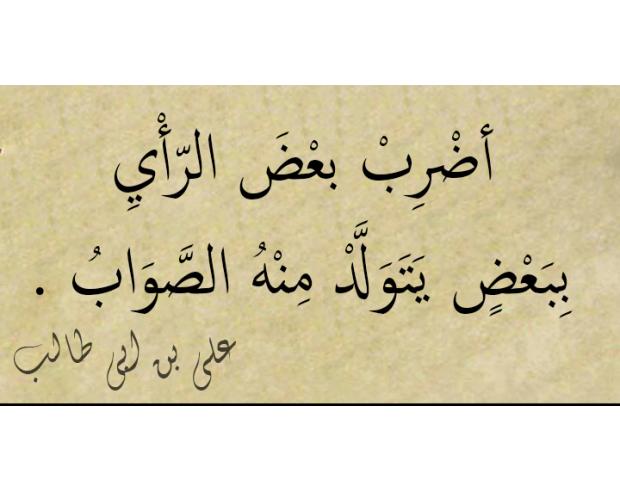 أضْرِبْ بعْضَ الرّأْيِ
بِبَعْضٍ يَتَوَلَّدْ مِنْهُ الصَّوَابُ .
علی بن ابی طالب